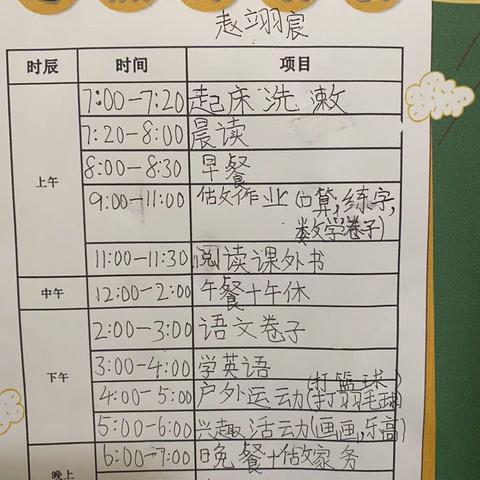 赵翊宸
时辰 时间 项目
上午 7:00-7:20 起床洗漱
7:20-8:00 晨读
8:00-8:30 早餐
9:00-11:00 做作业(口算,练字,
数学卷子)
11:00-11:30 阅读课外书
中午 12:00-2:00 午餐+午休
下午 2:00-3:00 语文卷子
3:00-4:00 学英语
4:00-5:00 户外运动(打篮球)
(打羽毛球)
5:00-6:00 兴趣活动(画画,乐高)
晚上 6:00-7:00 晚餐+做家务